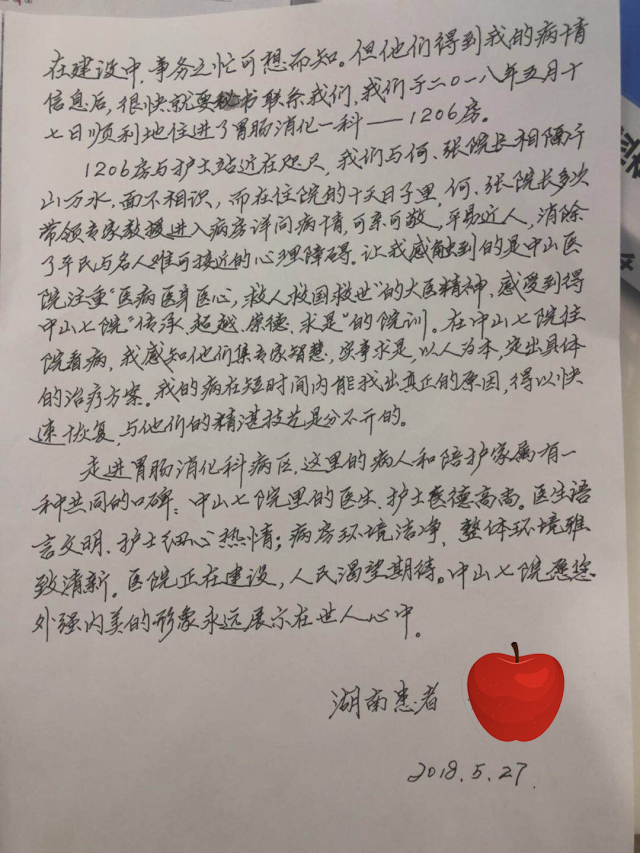 在建设中,事务之忙可想而知。但他们得到我的病情
信息后,很快就要秘书联系我们,我们于二〇一八年五月十
七日顺利地住进了胃肠消化一科——1206房。
1206房与护士站近在咫尺,我们与何、张院长相隔千
山万水,面不相识,而在住院的十天日子里,何、张院长多次
带领专家教授进入病房详问病情,可亲可敬,平易近人,消除
了平民与名人难可接近的心理障碍。让我感触到的是中山医
院注重"医病医身医心,救人救国救世"的大医精神,感受到得
中山七院"传承、超越、崇德、求是"的院训。在中山七院住
院看病,我感知他们集专家智慧,实事求是,以人为本,定出具体
的治疗方案。我的病在短时间内能找出真正的原因,得以快
速恢复,与他们的精湛技艺是分不开的。
走进胃肠消化科病区,这里的病人和陪护家属有一
种共同的口碑:中山七院里的医生、护士医德高尚。医生语
言文明、护士细心热情;病房环境洁净、整体环境雅
致清新。医院正在建设,人民渴望期待。中山七院愿您
外强内美的形象永远展示在世人心中。
湖南患者
2018.5.27.